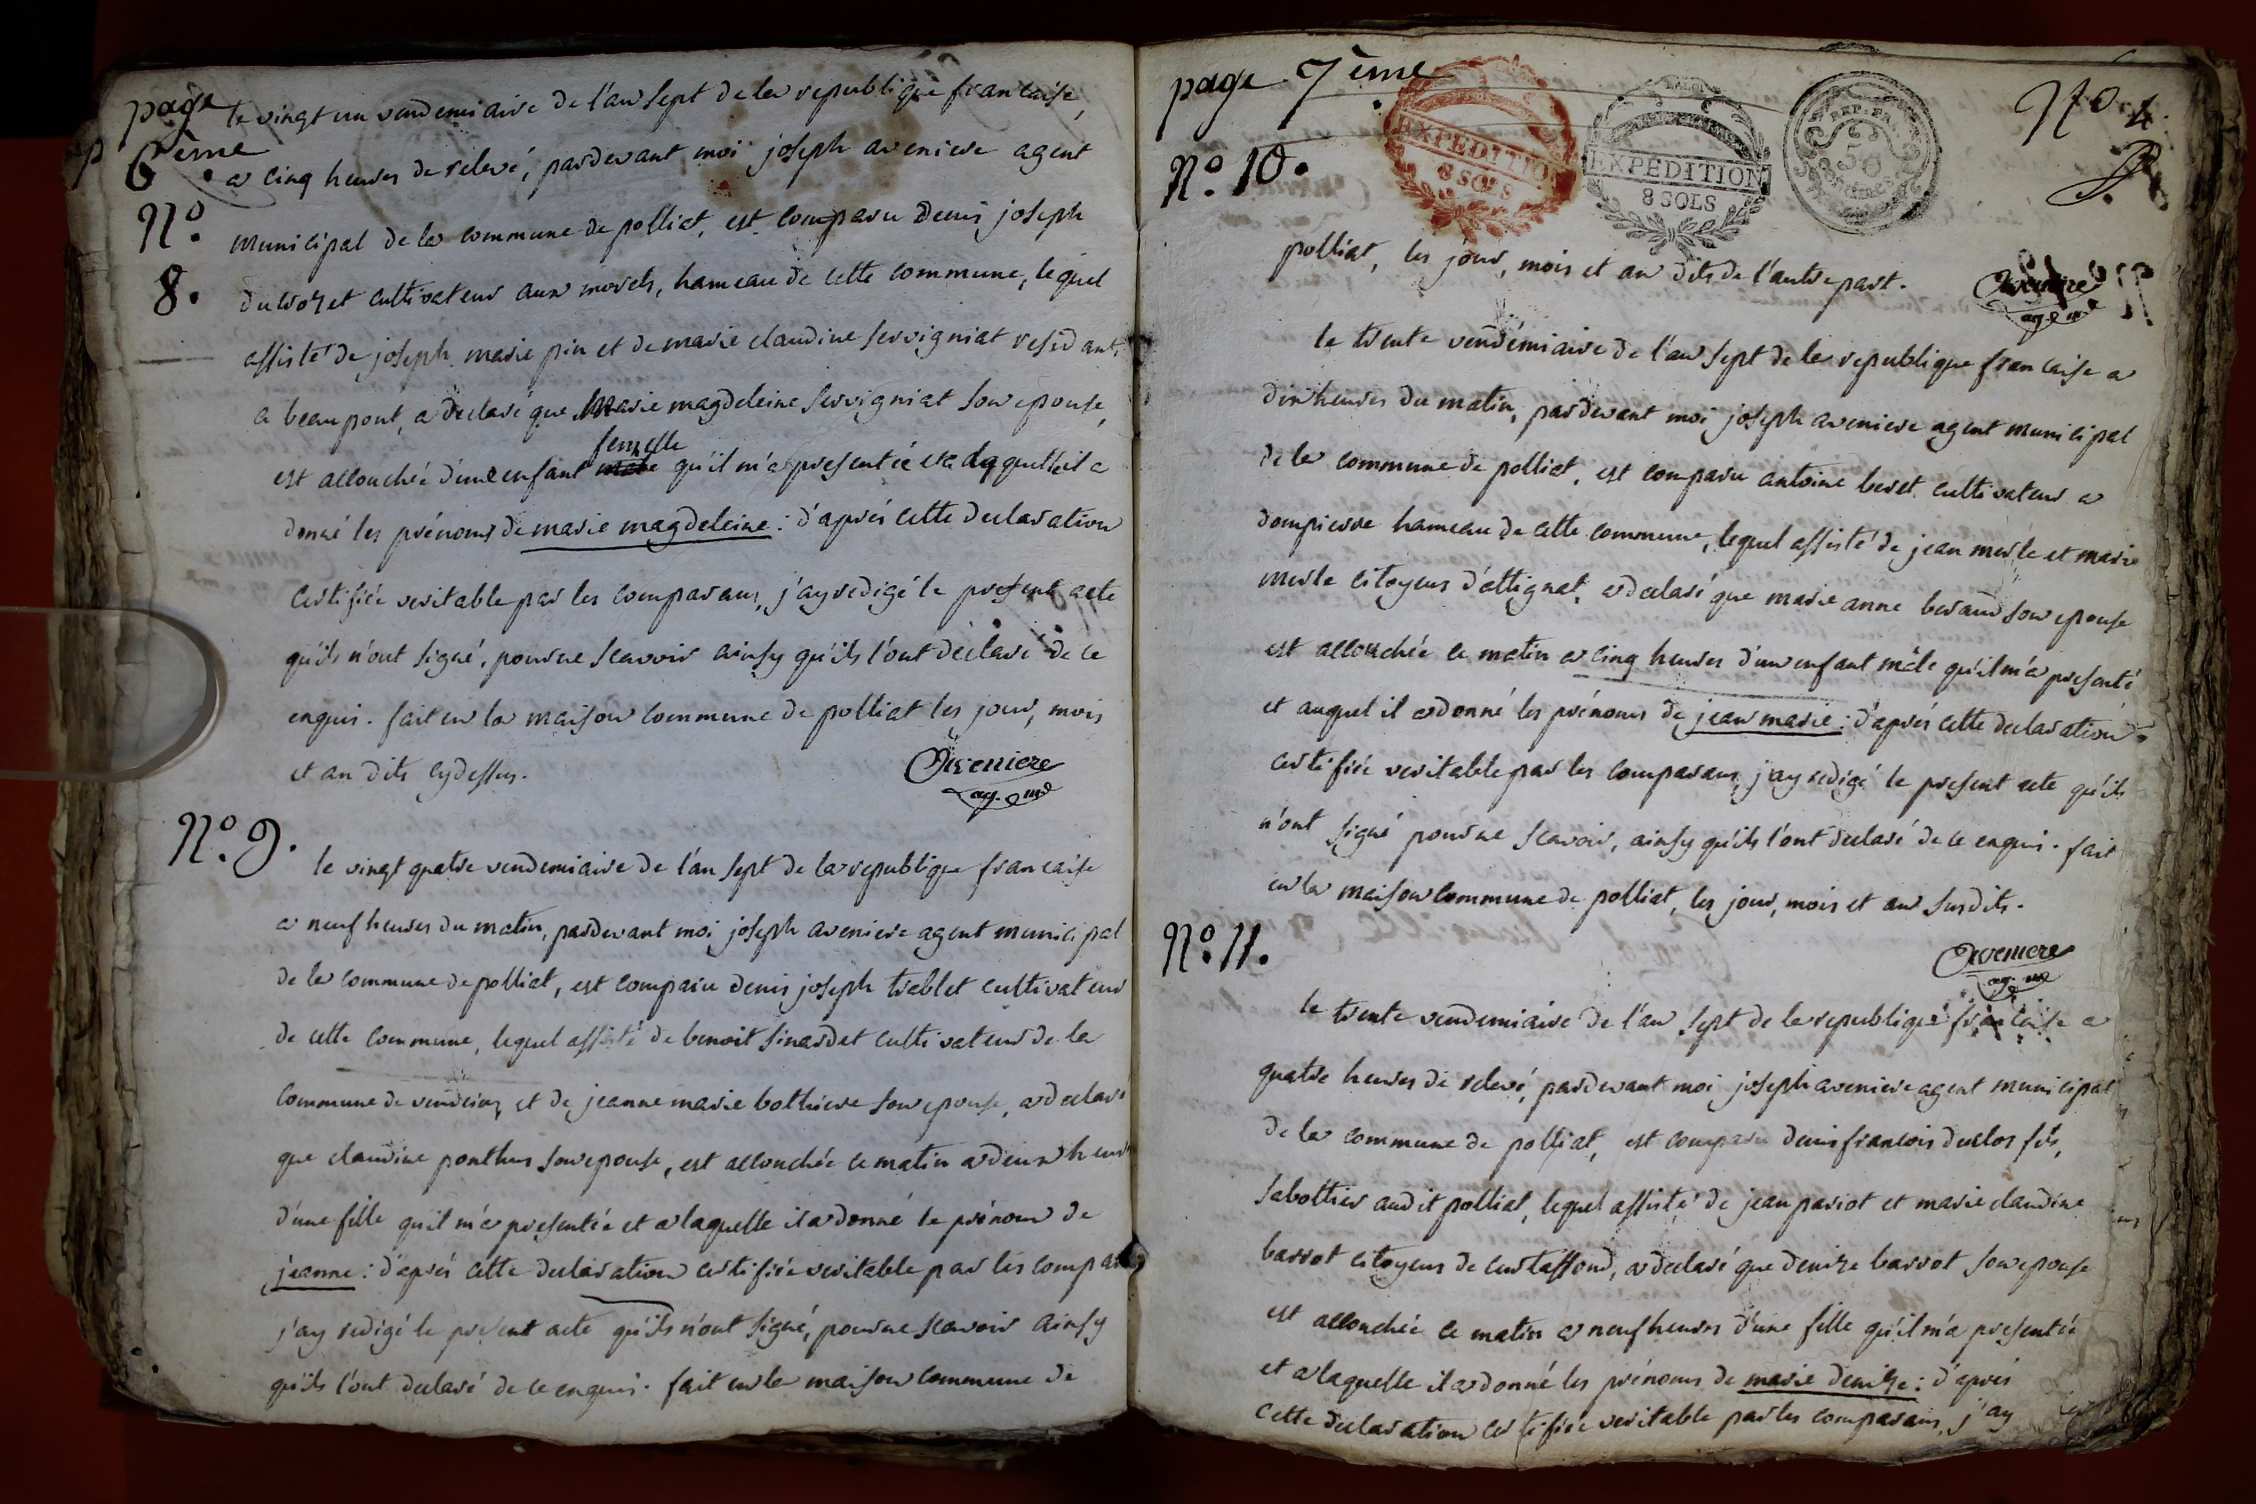 page
6ème.
Nº.
8.
le vingt un vendemiaire de l'an sept de la republique francaise,
a cinq heures de relevé, pardevant moi joseph aveniere agent
municipal de la commune de polliat, est comparu denis joseph
cultivateur aux morels, hameau de cette commune, lequel
assisté de joseph marie pin et de marie claudine servigniat residant
a beaupont, a declaré que marie magdeleine servigniat son epouse,
femelle
est accouchée d'une enfant male qu'il m'a presentée et a laquelle il a
donné les prénoms de marie magdeleine : d'aprés cette declaration
certifiée veritable par les comparans, j'ay redigé le present acte
qu'ils n'ont signé, pour ne scavoir ainsy qu'ils l'ont declaré de ce
enquis. fait en la maison commune de polliat les jour, mois
et an dits cydessus.
Aveniere
ag. m.
Nº. 9.
le vingt quatre vendemiaire de l'an sept de la republique francaise
a neuf heures du matin, pardevant moi joseph aveniere agent municipal
de la commune de polliat, est comparu denis joseph treblet cultivateur
de cette commune, lequel assisté de benoit sinardet cultivateur de la
commune de et de jeanne marie bothiere son epouse, a declaré
que claudine ponthus son epouse, est accouchée ce matin a deux heures
d'une fille qu'il m'a presentée et a laquelle il a donné le prénom de
jeanne : d'aprés cette declaration certifiée veritable par les comparans
j'ay redigé le present acte qu'ils n'ont signé, pour ne scavoir ainsy
qu'ils l'ont declaré de ce enquis. fait en la maison commune de
page 7ème.
EXPÉDITION
8 SOLS
EXPÉDITION
8 SOLS
REP. FRA.
50
Nº. 4.
Nº. 10.
polliat, les jour, mois et an dits de l'autre part.
Aveniere
ag. m.
le trente vendémiaire de l'an sept de la republique francaise a
dix heures du matin, pardevant moi joseph aveniere agent municipal
de la commune de polliat, est comparu antoine beret cultivateur a
dompierre hameau de cette commune, lequel assisté de jean merle et marie
merle citoyens d'attignat, a declaré que marie anne beraud son epouse
est accouchée ce matin a cinq heures d'un enfant mâle qu'il m'a presenté
et auquel il a donné les prénoms de jean marie : d'aprés cette declaration
certifiée veritable par les comparans, j'ay redigé le present acte qu'ils
n'ont signé pour ne scavoir, ainsy qu'ils l'ont declaré de ce enquis. fait
en la maison commune de polliat, les jour, mois et an susdits.
Aveniere
ag. m.
Nº. 11.
le trente vendemiaire de l'an sept de la republique francaise a
quatre heures de relevé, pardevant moi joseph aveniere agent municipal
de la commune de polliat, est comparu denis francois duclos fils,
sabottier audit polliat, lequel assisté de jean pariot et marie claudine
barrot citoyens de curtaffond, a declaré que denize barrot son epouse
est accouchée ce matin a neuf heures d'une fille qu'il m'a presentée
et a laquelle il a donné les prénoms de marie denize : d'aprés
cette declaration certifiée veritable par les comparans, j'ay